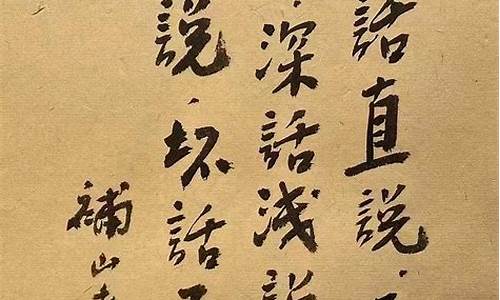 話直説
深話浅訴
説壞話
補山